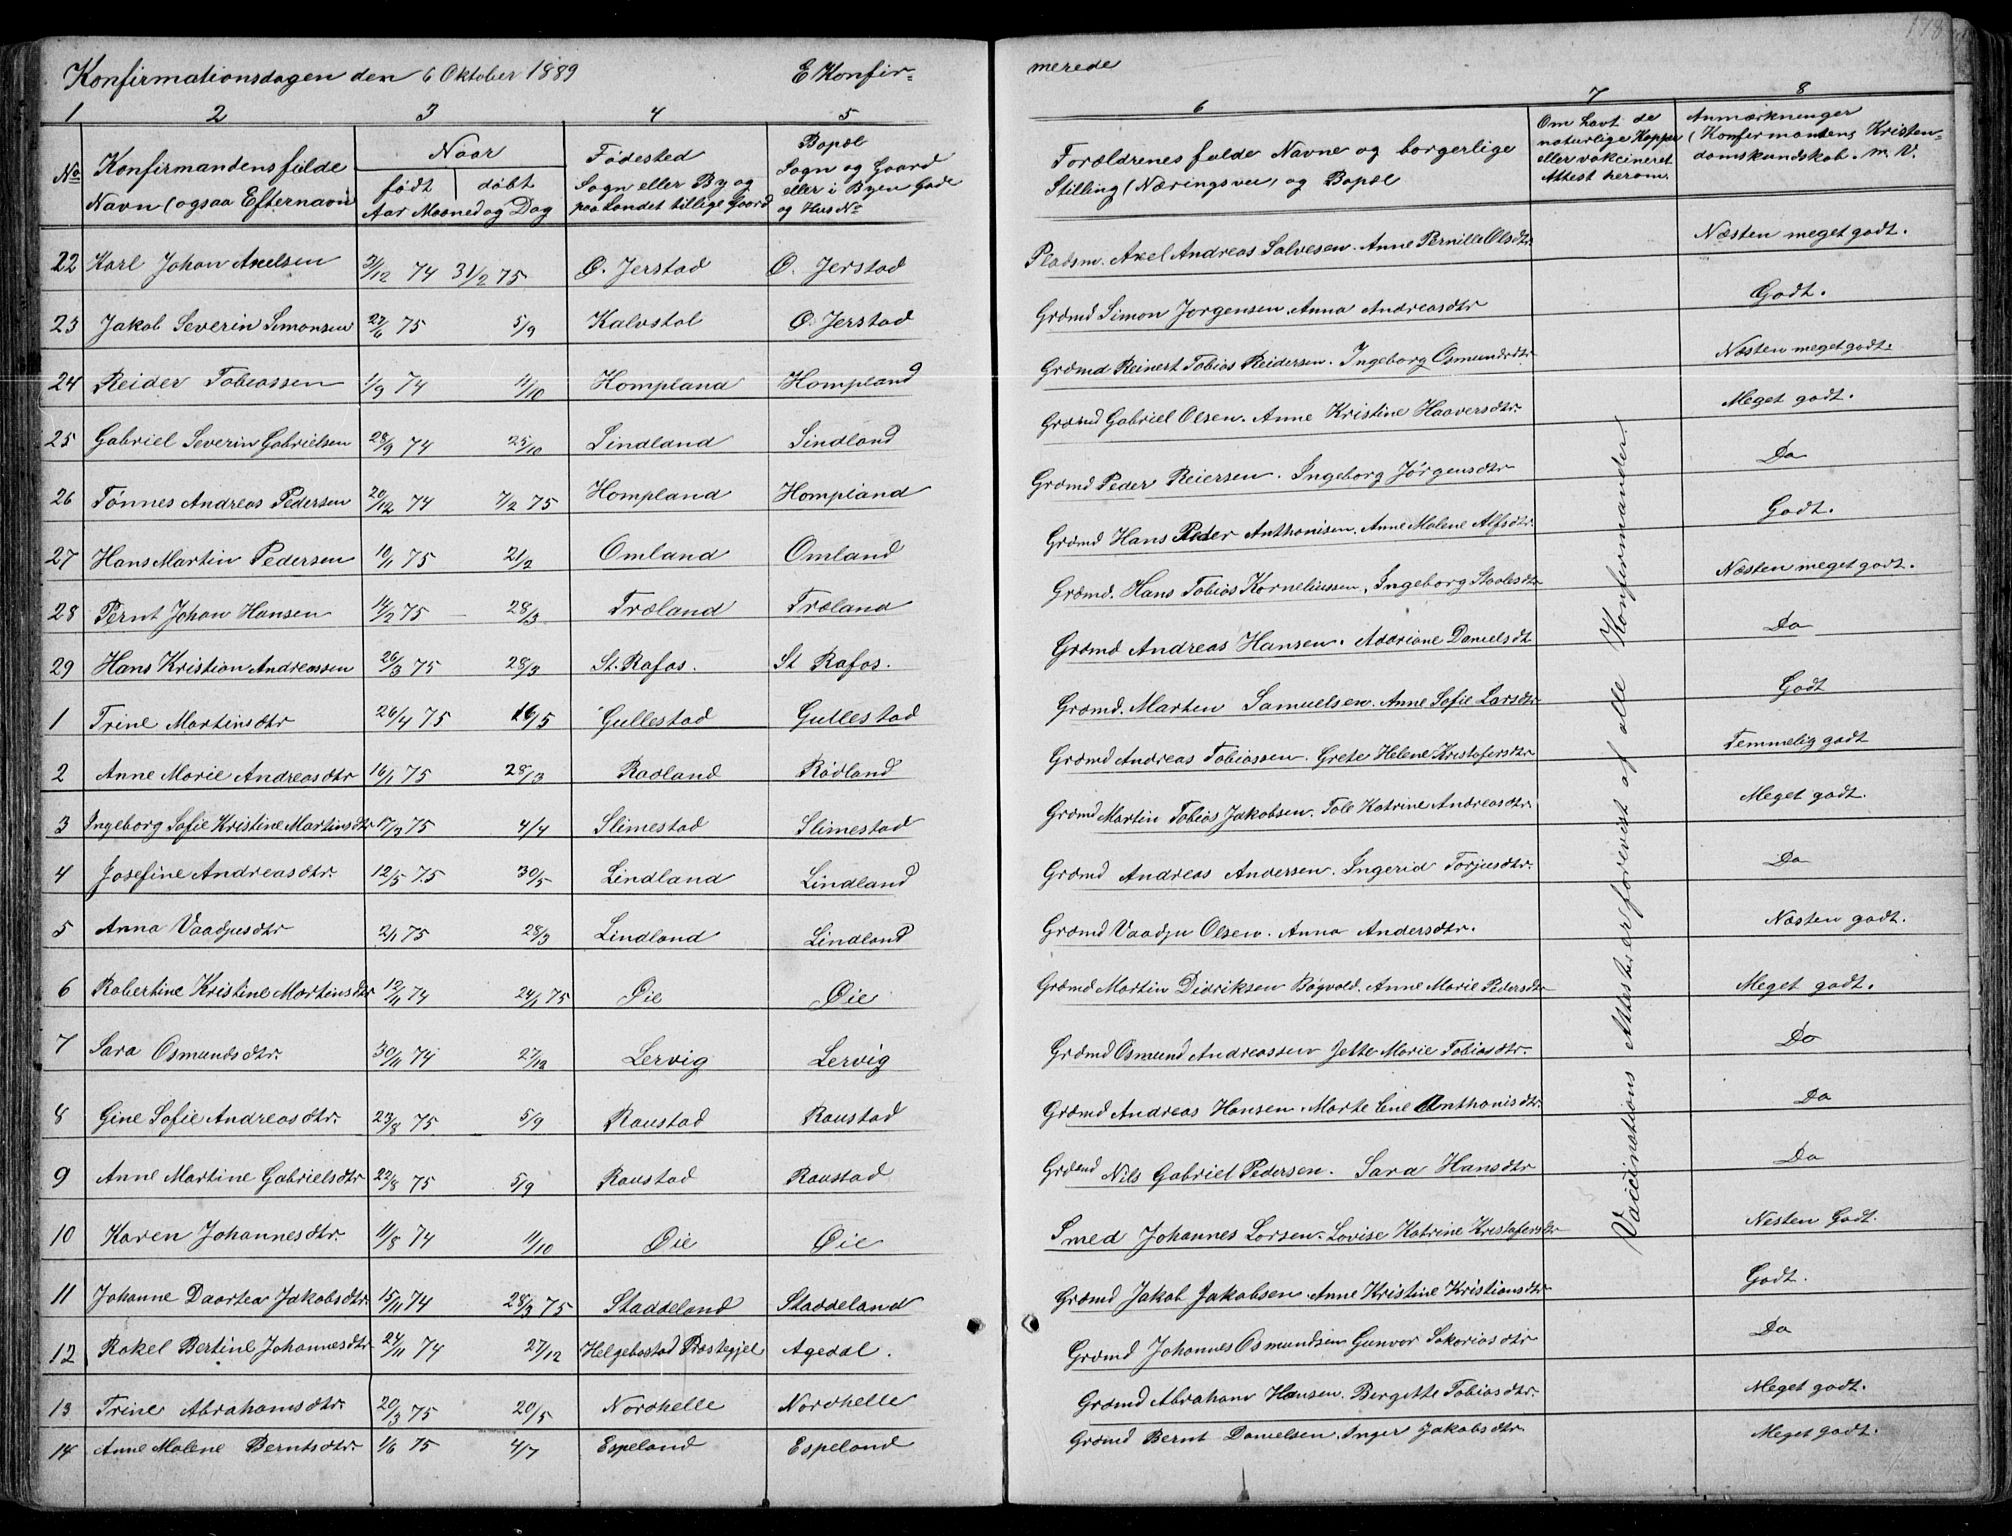 178
Konfirmationsdagen den 6 Oktober 1889 E Konfir=
merede
1 2 3 4 5
6 7 8
No
Konfirmandens fulde
Navn (ogsaa Efternavn)
Naar
født døbt
Aar Maaned og Dag
Fødested
Sogn eller By og
paa Landet tillige Gaard
Bopæl
Sogn og Gaard
eller i Byen Gade
og Hus No
Forældrenes fulde Navne og borgerlige
Stilling (Næringsvei) og Bopæl
Om havt de
naturlige Kopper
eller vakcineret
Attest herom.
Anmærkninger
(Konfirmantens Kristen-
domskundskab. m. V.
22 Karl Johan Axelsen 31/12 74 31/2 75 Ø. Jerstad Ø. Jerstad Pladsm. Axel Andreas Salvesen. Anne Pernille Olsdtr Næsten meget godt.
23 Jakob Severin Simonsen 27/6 75 5/9 Kalvstøl Ø. Jerstad Grdmd Simon Jørgensen. Anna Andreasdtr Godt.
24 Reider Tobiassen 1/9 74 11/10 Hompland Hompland Grdmd Reinert Tobias Reidersen. Ingeborg Osmundsdtr Næsten meget godt.
25 Gabriel Severin Gabrielsen 28/9 74 25/10 Lindland Lindland Grdmd Gabriel Olsen. Anne Kristine Haaversdtr. Meget godt.
26 Tønnes Andreas Pedersen 20/12 74 7/2 75 Hompland Hompland Grdmd Peder Reiersen. Ingeborg Jørgensdtr Do
27 Hans Martin Pedersen 10/1 75 21/2 Omland Omland Grdmd Hans Peder Anthonisen. Anne Malene Alfsdtr. Godt.
28 Pernt Johan Hansen 11/2 75 28/3 Træland Træland Grdmd. Hans Tobias Korneliussen, Ingeborg Staalesdtr Næsten meget godt.
29 Hans Kristian Andreassen 26/3 75 28/3 St. Rafos. St Rafos. Grdmd Andreas Hansen. Addriane Danielsdt Do
1 Trine Martinsdtr 26/4 75 16/5 Gullestad Gullestad Grdmd. Marten Samuelsen. Anne Sofie Larsdtr Godt
2 Anne Marie Andreasdtr 16/1 75 28/3 Rødland Rødland Grdmd Andreas Tobiassen. Grete Helene Kristofersdtr Temmelig godt
3 Ingeborg Sofie Kristine Martinsdtr 17/3 75 4/4 Slimestad Slimestad Grdmd Martin Tobias Jakobsen. Tale Katrine Andreasdtr. Meget godt.
4 Josefine Andreasdtr. 12/5 75 30/5 Lindland Lindland Grdmd Andreas Andersen. Ingerid Torjusdtr. Do
5 Anna Vaadjusdtr 2/1 75 28/3 Lindland Lindland Grdmd Vaadju Olsen. Anna Andersdtr. Næsten godt.
6 Robertine Kristine Martinsdtr 12/11 74 24/1 75 Øie Øie Grdmd Martin Didriksen Bøgvold. Anne Marie Pedersdtr Meget godt.
7 Sara Osmundsdtr. 30/11 74 27/12 Lervig Lervig Grdmd Osmund Andreassen Jette Marie Tobiasdtr. Do
8 Gine Sofie Andreasdtr. 23/8 75 5/9 Raustad Raustad Grdmd Andreas Hansen. Marte Lene Anthonisdtr. Do
9 Anne Martine Gabrielsdtr 22/8 75 5/9 Raustad Raustad Grdmd Nils Gabriel Pedersen. Sara Hansdtr Do
10 Karen Johannesdtr. 11/8 74 11/10 Øie Øie Smed Johannes Larsen. Lovise Katrine Kristofersdtr Nesten Godt.
11 Johanne Daartea Jakobsdtr. 15/11 74 28/3 75 Staddeland Staddeland Grdmd Jakob Jakobsen. Anne Kristine Kristiansdtr Godt.
12 Rakel Bertine Johannesdtr 24/11 74 27/12 Helgebostad Præstegjel Agedal. Grdmd Johannes Osmundsen Gunvor Sakariasdtr Do
13 Trine Abrahamsdtr. 20/3 75 20/5 Nordhelle Nordhelle Grdmd Abraham Hansen. Bergitte Tobiasdtr. Meget godt.
14 Anne Malene Berntsdtr. 1/6 75 4/7 Espeland Espeland Grdmd Bernt Danielsen. Inger Jakobsdtr. Meget godt.
Vaccinations Attester forevist af alle Konfirmander.